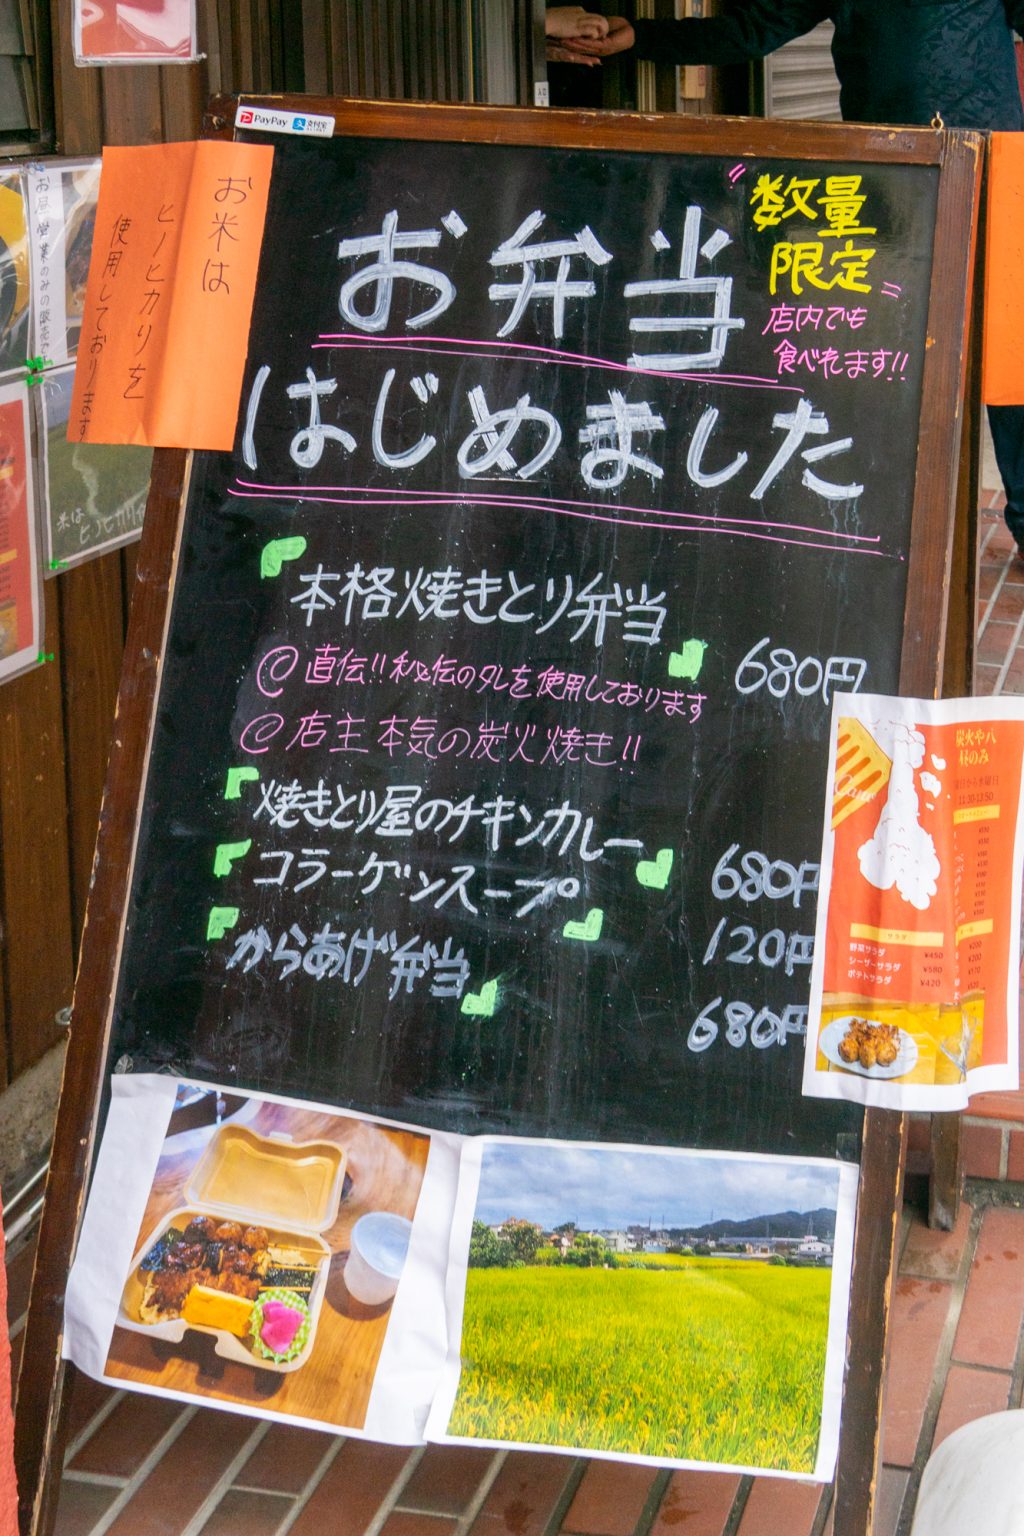 PayPay 支付宝
お米は
ヒノヒカリを
使用しております
お昼営業のみの販売で
数量
限定
店内でも
食べれます!!
お弁当
はじめました
本格焼きとり弁当
680円
@直伝!!秘伝のタレを使用しております
@店主本気の炭火焼き!!
焼きとり屋のチキンカレー
680円
コラーゲンスープ
120円
からあげ弁当
680円
米は
ヒノヒカリ
炭火や八
昼のみ
11:30-13:50
サラダ
野菜サラダ ¥450
シーザーサラダ ¥580
ポテトサラダ ¥420